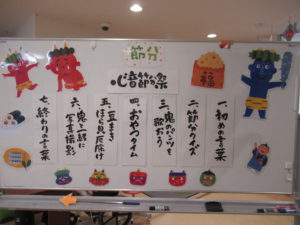 節分
心音節分祭
福
一、初めの言葉
二、節分のクイズ
三、鬼のパンツを
歌おう
四、おやつタイム
五、豆まき
ほら見て厄除け
六、鬼と一緒に
写真撮影
七、終わりの言葉